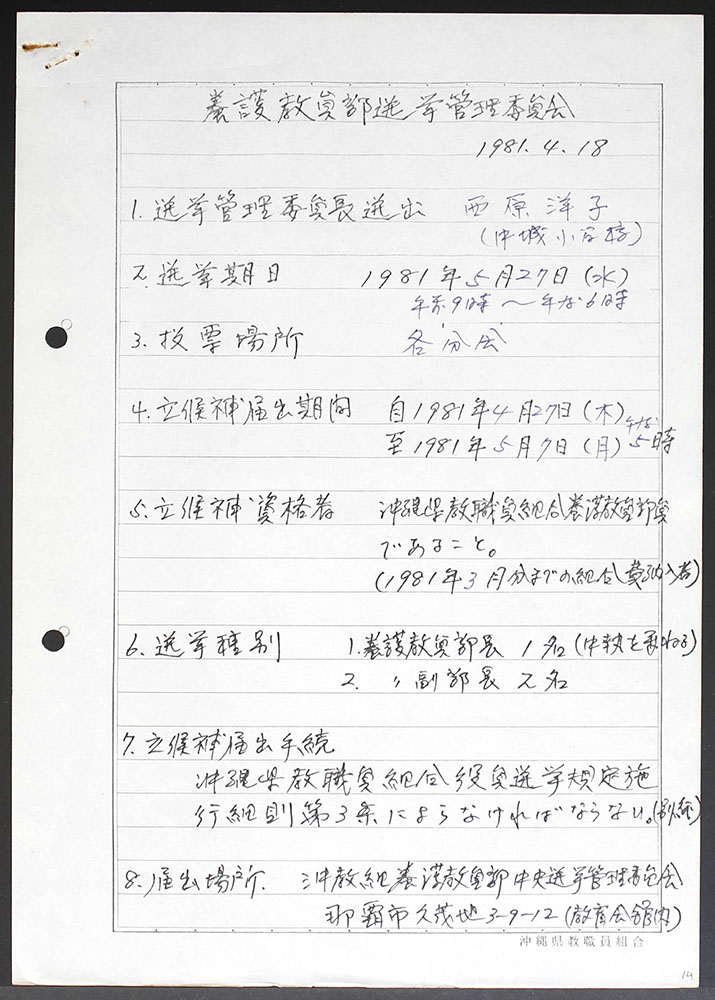 養護教員部選挙管理委員会
1981.4.18
1. 選挙管理委員長選出 西原洋子
(中城小学校)
2. 選挙期日 1981年5月27日(水)
午前9時〜午后6時
3. 投票場所 各分会
4. 立候補届出期間 自1981年4月27日(木)
至1981年5月7日(月)午后5時
5. 立候補資格者 沖縄県教職員組合養護教員部員
であること。
(1981年3月分までの組合費納入者)
6. 選挙種別 1. 養護教員部長 1名(中執を兼ねる)
2. 〃副部長 2名
7. 立候補届出手続
沖縄県教職員組合役員選挙規定施
行細則第3条によらなければならない。(別紙)
8. 届出場所. 沖教組養護教員部中央選挙管理委員会
那覇市久茂地3-9-12(教育会館内)
沖縄県教職員組合
14